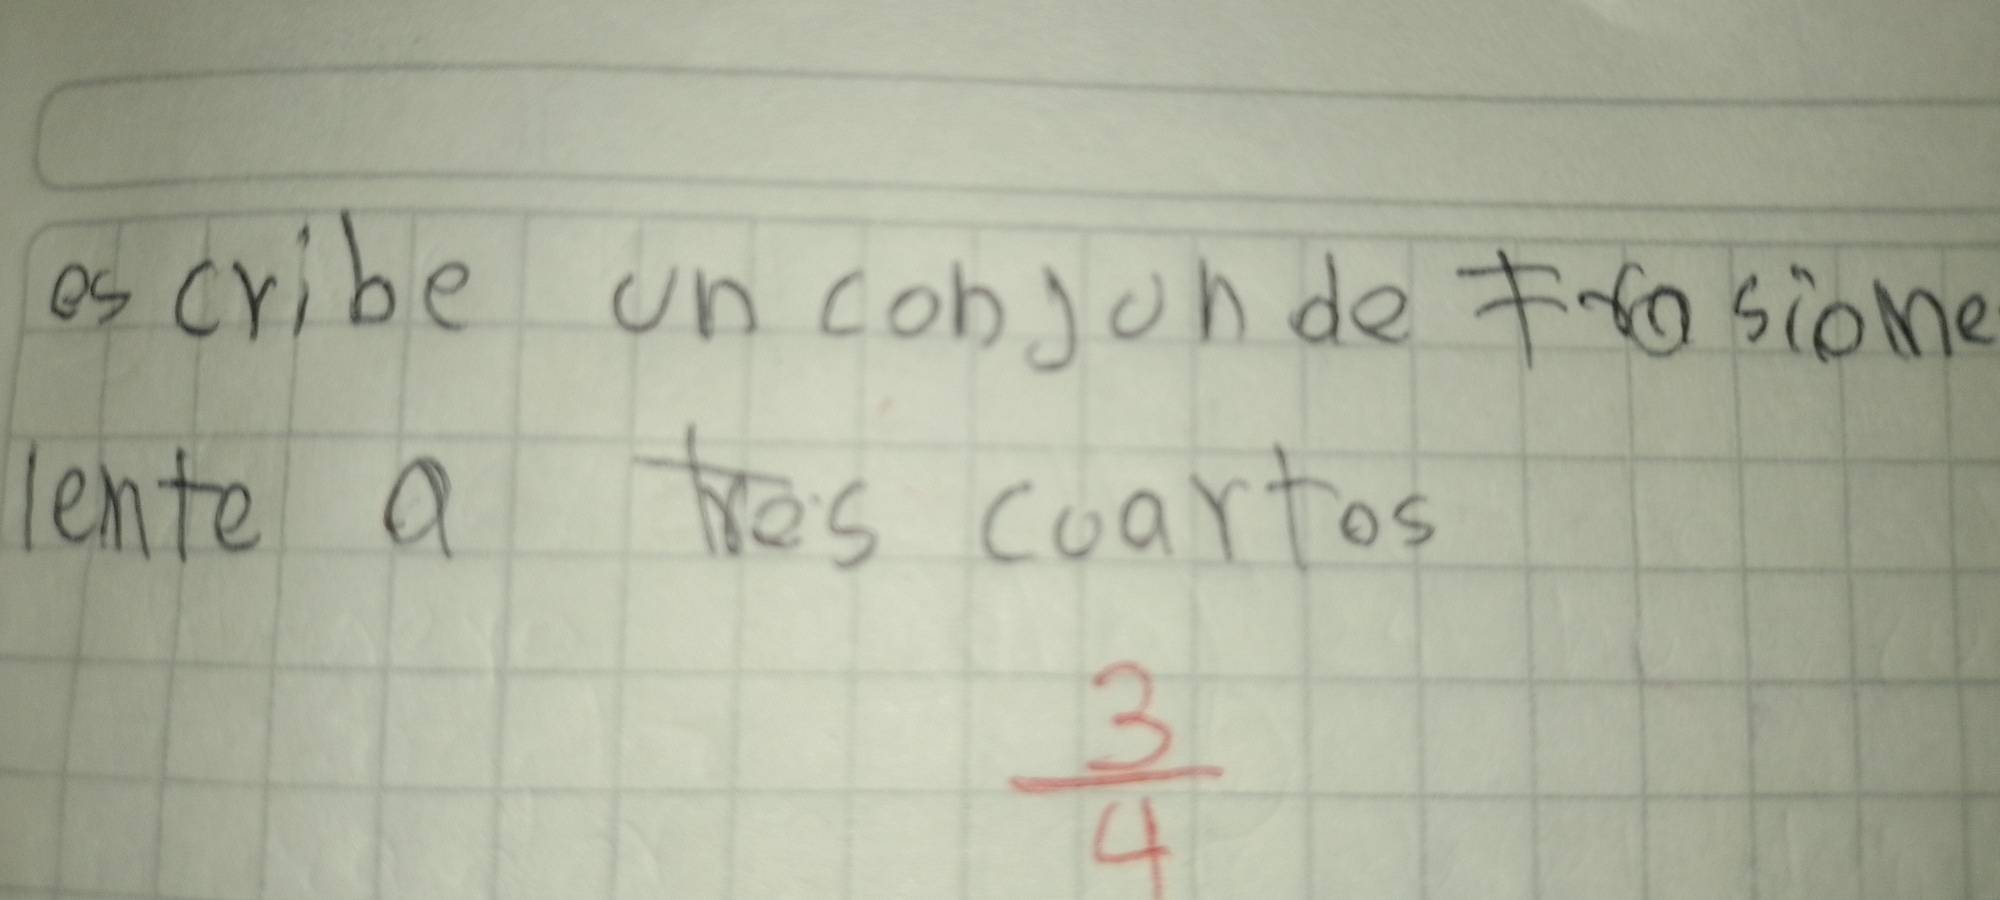 escribe un conjun de frasione
lente a tres cuartos
3
4